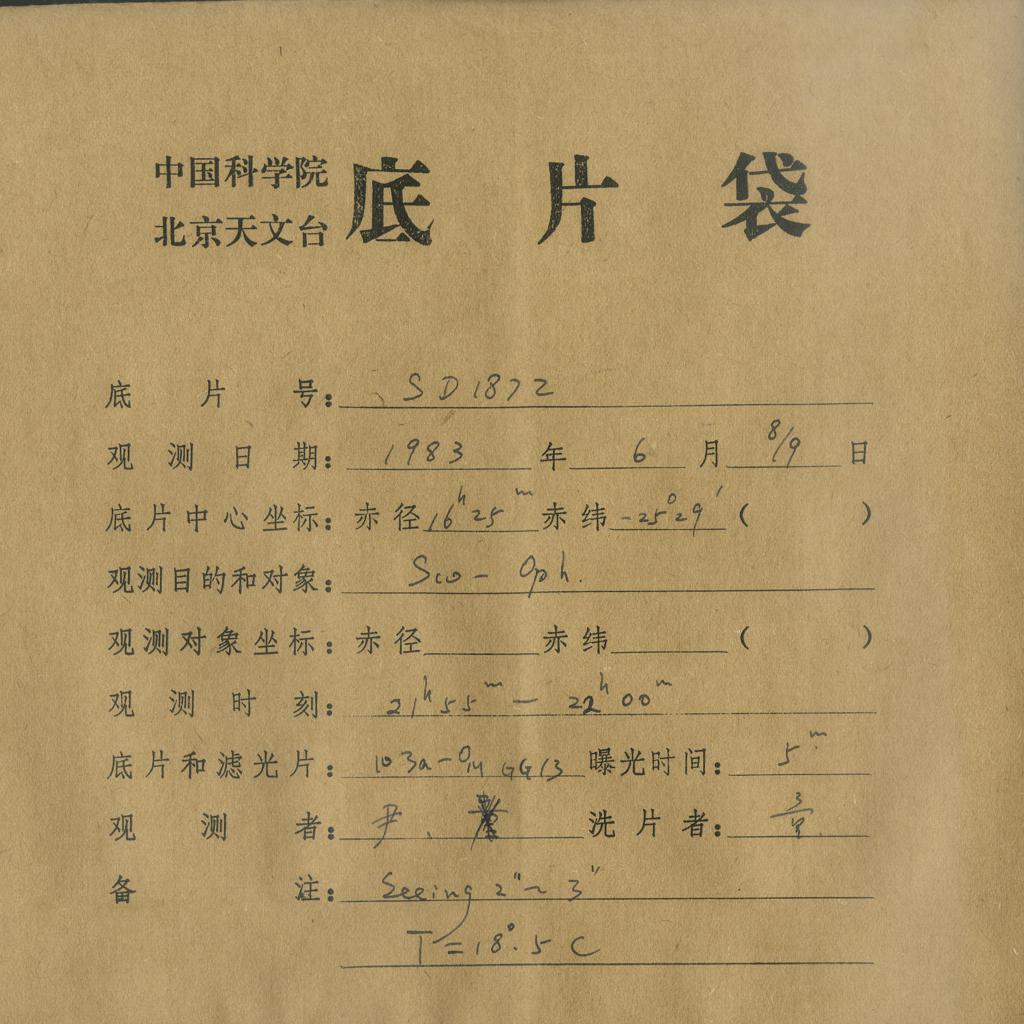 中国科学院
北京天文台
底片袋
底片号: SD1872
观测日期: 1983 年 6 月 8/9 日
底片中心坐标: 赤径 16h25m 赤纬 -25°29′ ( )
观测目的和对象: Sco - Oph.
观测对象坐标: 赤径 赤纬 ( )
观测时刻: 21h55m — 22h00m
底片和滤光片: 103a-O GG13 曝光时间: 5m
观测者: 尹、 洗片者:
备注: Seeing 2″~3″
T=18°.5 C